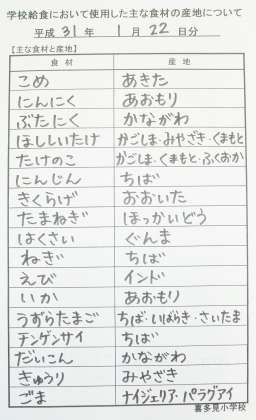 学校給食において使用した主な食材の産地について
平成 31 年 1 月 22 日分
【主な食材と産地】
食材 産地
こめ あきた
にんにく あおもり
ぶたにく かながわ
ほししいたけ かごしま・みやざき・くまもと
たけのこ かごしま・くまもと・ふくおか
にんじん ちば
きくらげ おおいた
たまねぎ ほっかいどう
はくさい ぐんま
ねぎ ちば
えび インド
いか あおもり
うずらたまご ちば・いばらき・さいたま
チンゲンサイ ちば
だいこん かながわ
きゅうり みやざき
ごま ナイジェリア・パラグアイ
喜多見小学校